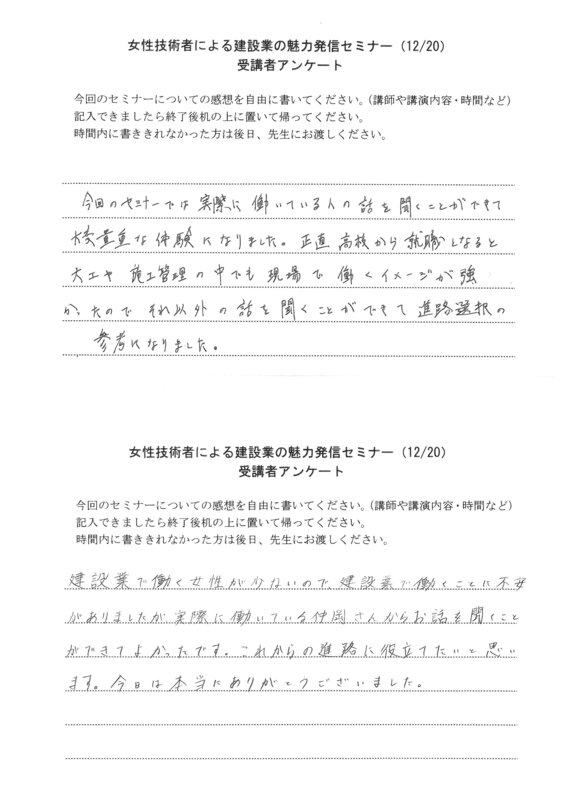 女性技術者による建設業の魅力発信セミナー（12/20）
受講者アンケート
今回のセミナーについての感想を自由に書いてください。（講師や講演内容・時間など）
記入できましたら終了後机の上に置いて帰ってください。
時間内に書ききれなかった方は後日、先生にお渡しください。
今回のセミナーでは実際に働いている人の話を聞くことができて
大変貴重な体験になりました。正直高校から就職しなると
大工や施工管理の中でも現場で働くイメージが強
かったので それ以外の話を聞くことができて進路選択の
参考になりました。
女性技術者による建設業の魅力発信セミナー（12/20）
受講者アンケート
今回のセミナーについての感想を自由に書いてください。（講師や講演内容・時間など）
記入できましたら終了後机の上に置いて帰ってください。
時間内に書ききれなかった方は後日、先生にお渡しください。
建設業で働く女性が少ないので、建設業で働くことに不安
がありましたが実際に働いている仲岡さんからお話を聞くこと
ができてよかったです。これからの進路に役立てたいと思い
ます。今日は本当にありがとうございました。